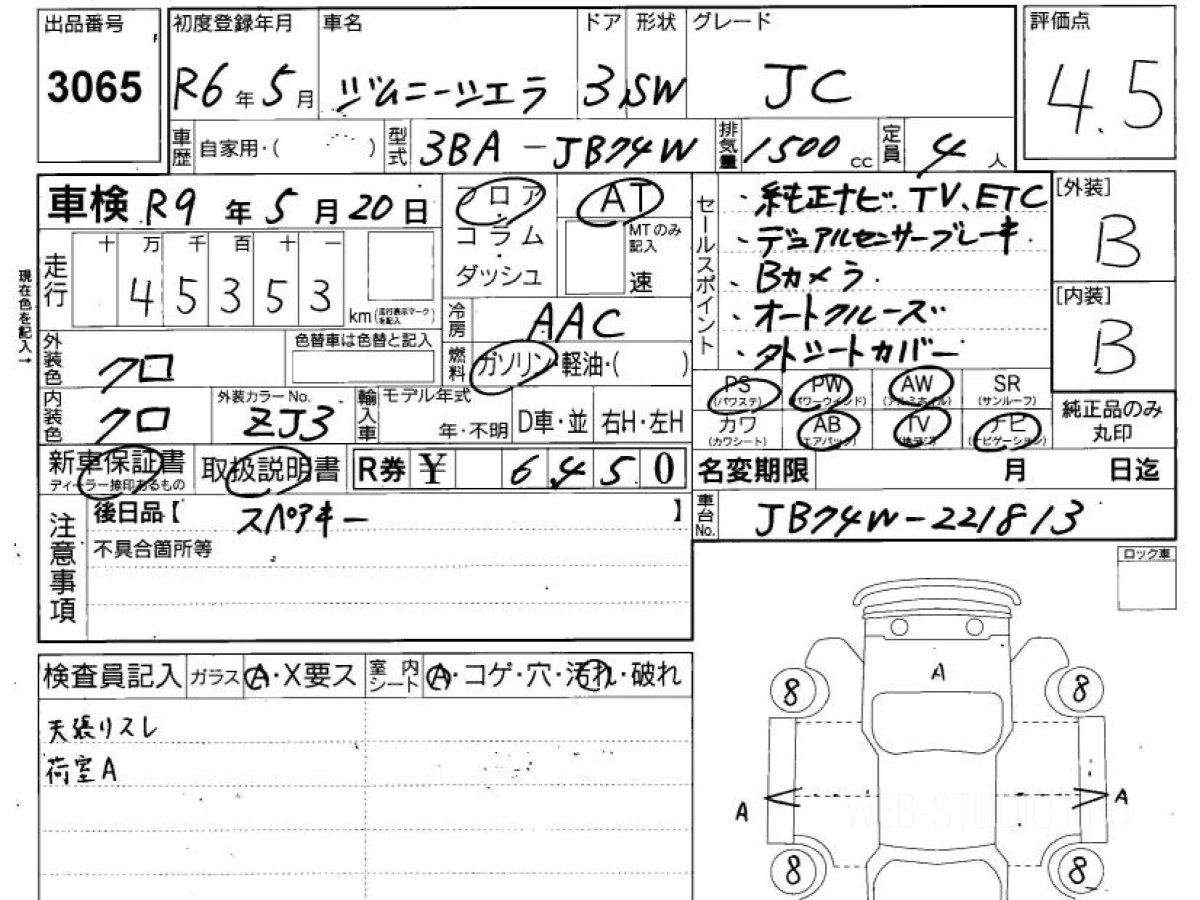 出品番号
3065
初度登録年月
R6年5月
車名
ジムニーシエラ
ドア
3
形状
SW
グレード
JC
評価点
4.5
車歴
自家用・( )
型式
3BA-JB74W
排気量
1500cc
定員
4人
車検 R9年5月20日
フロア・
コラム・
ダッシュ
AT
MTのみ記入
速
セールスポイント
・純正ナビ、TV、ETC
・デュアルセンサーブレーキ
・Bカメラ
・オートクルーズ
・タトシートカバー
[外装]
B
[内装]
B
純正品のみ
丸印
現在色を記入→
走行
十 万 千 百 十 一
4 5 3 5 3
km(走行表示マークを記入)
冷房
AAC
燃料
ガソリン・軽油・( )
外装色
クロ
色替車は色替と記入
内装色
クロ
外装カラーNo.
ZJ3
輸入車
モデル年式
年・不明
D車・並
右H・左H
PS
(パワステ)
PW
(パワーウインド)
AW
(アルミホイル)
SR
(サンルーフ)
カワ
(カワシート)
AB
(エアバック)
TV
ナビ
(ナビゲーション)
新車保証書
ディーラー捺印あるもの
取扱説明書
R券 ¥ 6 4 5 0
名変期限 月 日迄
注意事項
後日品【 スペアキー 】
不具合箇所等
車台No.
JB74W-221813
ロック車
検査員記入
ガラス
A・X要ス
室内シート
A・コゲ・穴・汚れ・破れ
天張りスレ
荷室A
A
8
8
A
A
8
8
WEB-STUDIO.PRO